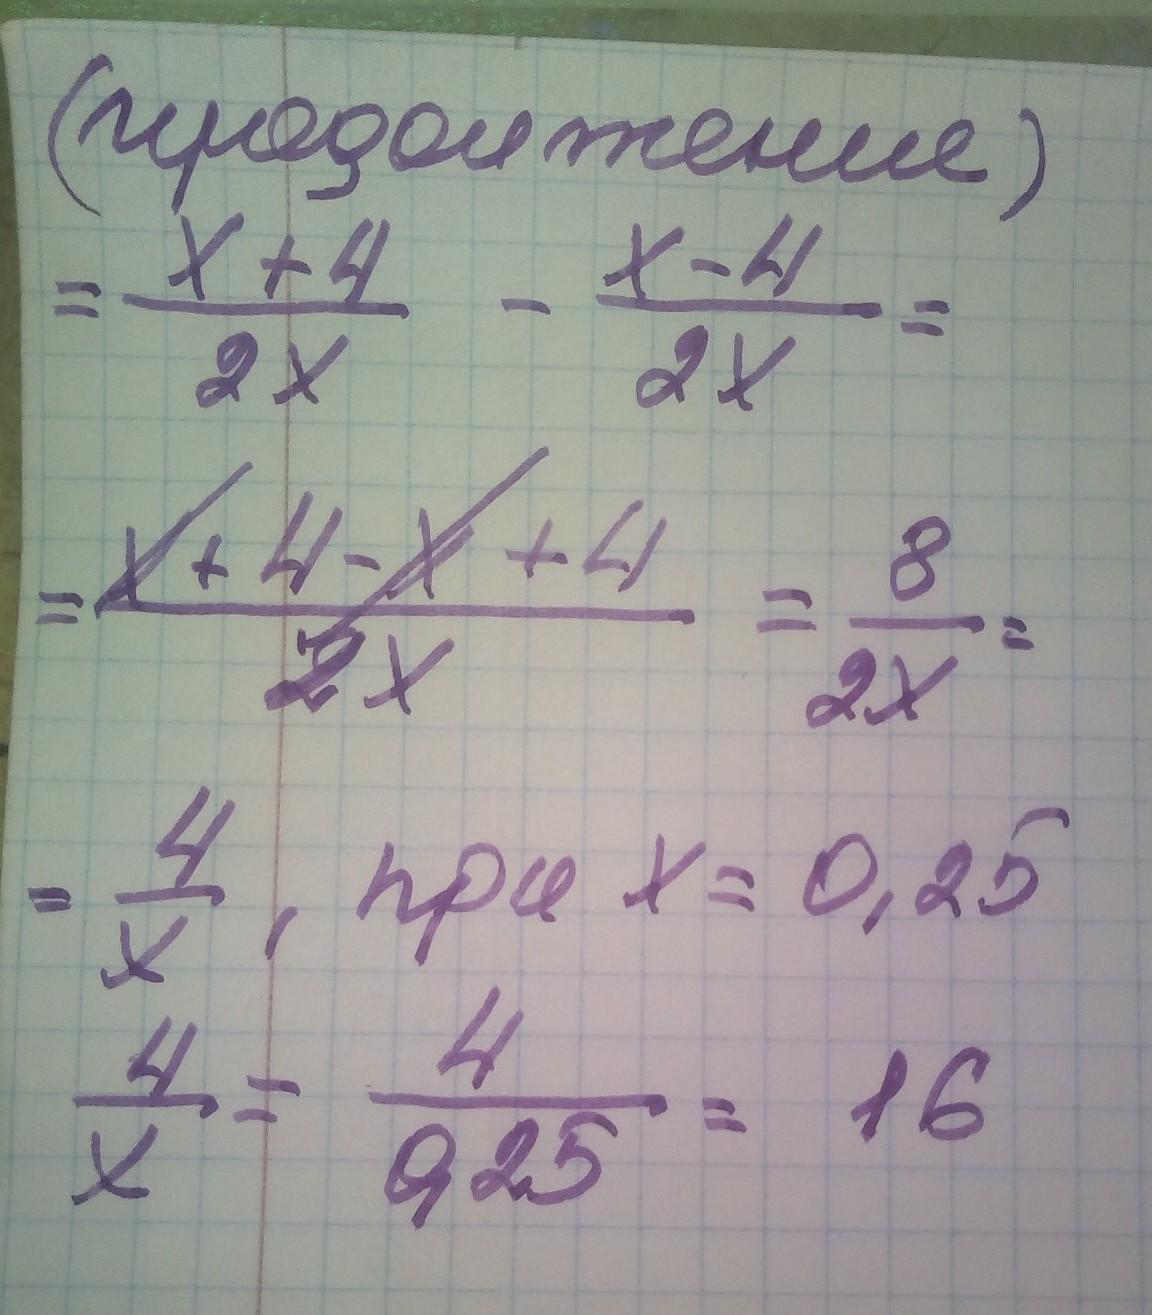 (продолжение)
= x + 4 / 2x - x - 4 / 2x =
= x + 4 - x + 4 / 2x = 8 / 2x =
= 4 / x , при x = 0,25
4 / x = 4 / 0,25 = 16